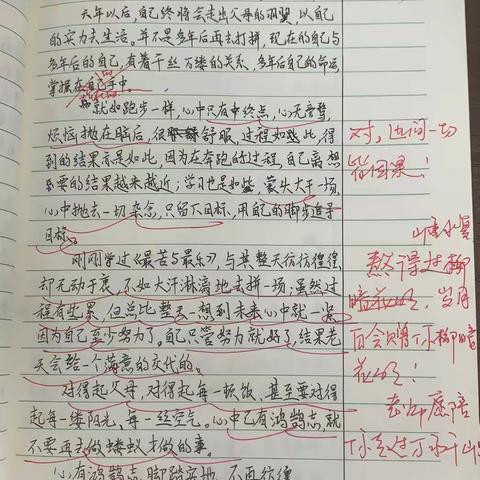 六年以后，自己终将会走出父母的羽翼，以自
的实力去生活。并不是多年后再去打拼，现在的自己与
多年后的自己，有着千丝万缕的关系，多年后自己的命运
掌握在自己手中。
就如跑步一样，心中只有中终点，心无旁骛，
烦恼抛在脑后，很舒服，过程如此，得
到的结果亦是如此，因为在奔跑的过程，自己离想
要的结果越来越近；学习也是如此，蒙头大干一场，
心中抛去一切杂念，只留下目标，用自己的脚步追寻
目标。
刚刚学过《最苦与最乐》，与其整天彷彷徨徨，
却无动于衷，不如大汗淋漓地去拼一场；虽然过
程有些累，但总比整天一想到未来心中就一紧
因为自己至少努力了。自己只管努力就好了，结果老
天会给一个满意的交代的。
对得起父母，对得起每一顿饭，甚至要对得
起每一缕阳光，每一丝空气。心中已有鸿鹄志，就
不要再去做蝼蚁才做的事。
心有鸿鹄志，脚踏实地，不再彷徨
对，世间一切
皆因果！
山重水复
熬得过柳
暗花明，岁月
百会赐你柳暗
花明！
老师愿陪
你走过万水千山